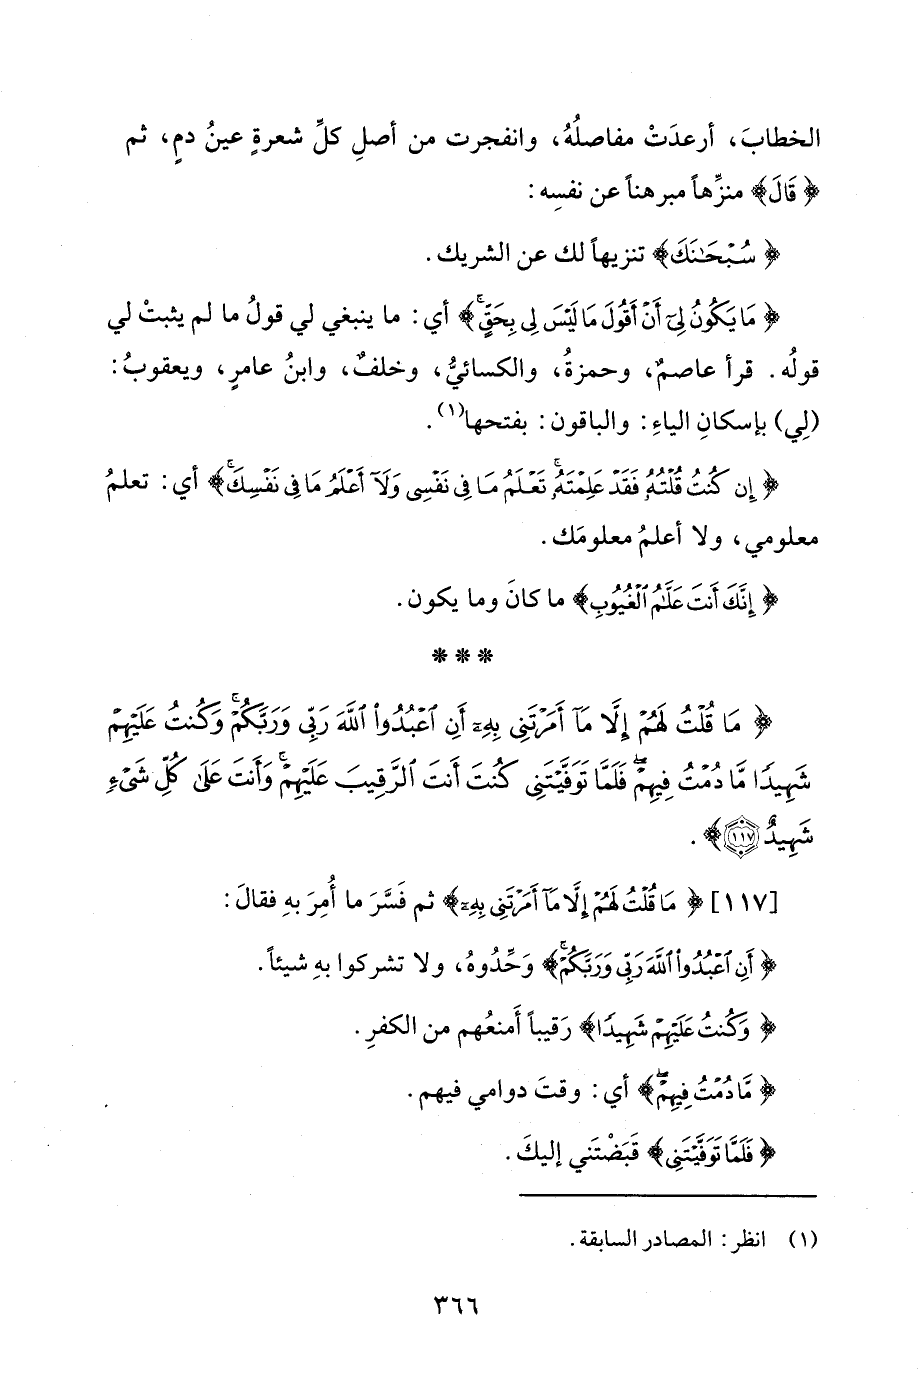 الخطابَ، أرعدَتْ مفاصلُهُ، وانفجرت من أصلِ كلِّ شعرةٍ عينُ دمٍ، ثم
﴿قَالَ﴾ منزِّهاً مبرهناً عن نفسِه:
﴿سُبْحَٰنَكَ﴾ تنزيهاً لك عن الشريك.
﴿مَا يَكُونُ لِيٓ أَنْ أَقُولَ مَا لَيْسَ لِي بِحَقٍّۚ﴾ أي: ما ينبغي لي قولُ ما لم يثبتْ لي
قولُه. قرأ عاصمٌ، وحمزةُ، والكسائيُّ، وخلفٌ، وابنُ عامرٍ، ويعقوبُ:
(لِي) بإسكانِ الياءِ: والباقون: بفتحها(١).
﴿إِن كُنتُ قُلْتُهُۥ فَقَدْ عَلِمْتَهُۥۚ تَعْلَمُ مَا فِي نَفْسِي وَلَآ أَعْلَمُ مَا فِي نَفْسِكَۚ﴾ أي: تعلمُ
معلومي، ولا أعلمُ معلومَك.
﴿إِنَّكَ أَنتَ عَلَّٰمُ ٱلْغُيُوبِ﴾ ما كانَ وما يكون.
* * *
﴿مَا قُلْتُ لَهُمْ إِلَّا مَآ أَمَرْتَنِي بِهِۦٓ أَنِ ٱعْبُدُوا۟ ٱللَّهَ رَبِّي وَرَبَّكُمْۚ وَكُنتُ عَلَيْهِمْ
شَهِيدًا مَّا دُمْتُ فِيهِمْۖ فَلَمَّا تَوَفَّيْتَنِي كُنتَ أَنتَ ٱلرَّقِيبَ عَلَيْهِمْۚ وَأَنتَ عَلَىٰ كُلِّ شَيْءٍ
شَهِيدٌ ١١٧﴾.
[١١٧] ﴿مَا قُلْتُ لَهُمْ إِلَّا مَآ أَمَرْتَنِي بِهِۦٓ﴾ ثم فَسَّرَ ما أُمِرَ بهِ فقالَ:
﴿أَنِ ٱعْبُدُوا۟ ٱللَّهَ رَبِّي وَرَبَّكُمْۚ﴾ وَحِّدُوهُ، ولا تشركوا بهِ شيئاً.
﴿وَكُنتُ عَلَيْهِمْ شَهِيدًا﴾ رَقيباً أَمنعُهم من الكفرِ.
﴿مَّا دُمْتُ فِيهِمْۖ﴾ أي: وقتَ دوامي فيهم.
﴿فَلَمَّا تَوَفَّيْتَنِي﴾ قَبَضْتَني إليكَ.
(١) انظر: المصادر السابقة.
٣٦٦